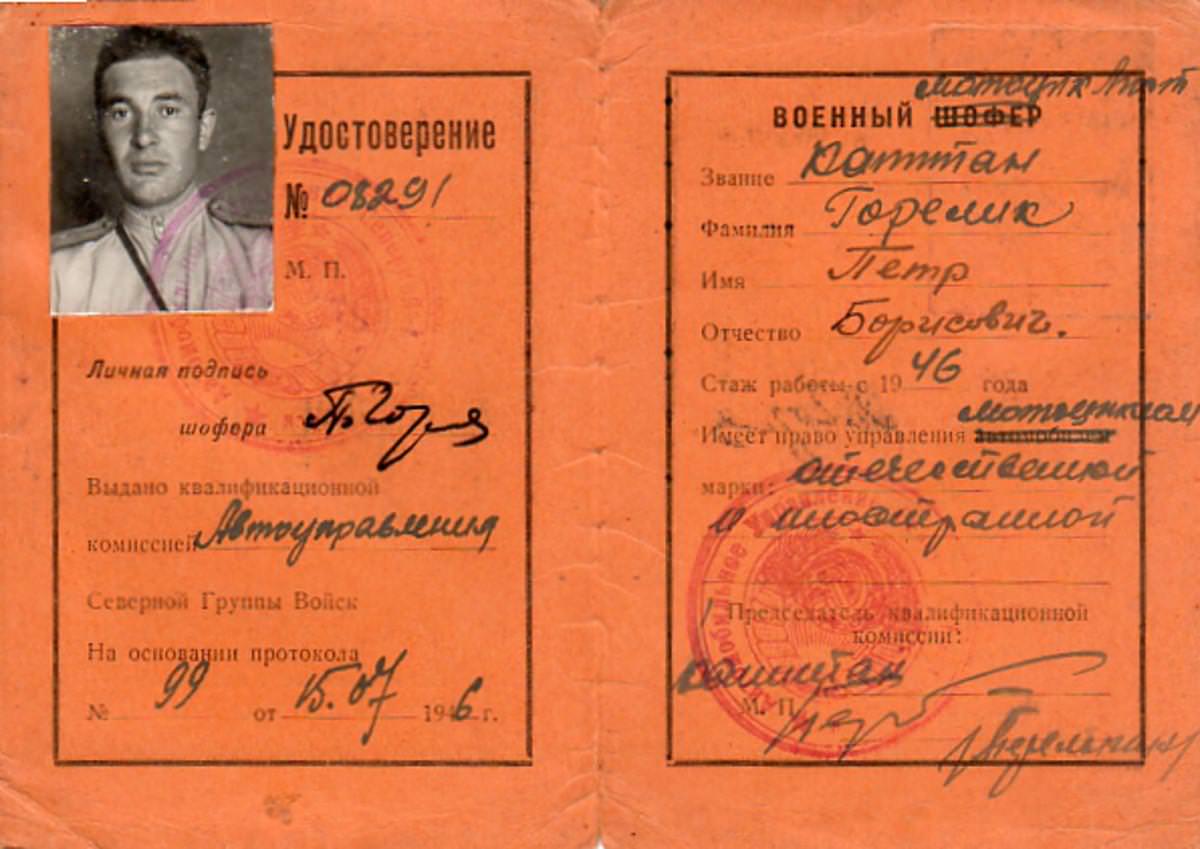 Удостоверение
№ 08291
М. П.
Личная подпись
шофера
Выдано квалификационной
комиссией Автоуправления
Северной Группы Войск
На основании протокола
№ 99 от 15.07 1946 г.
мотоциклист
ВОЕННЫЙ ШОФЕР
Звание Капитан
Фамилия Горелик
Имя Петр
Отчество Борисович.
Стаж работы с 1946 года
мотоциклом
Имеет право управления автомобилем
марки: отечественной
и иностранной
Председатель квалификационной
комиссии:
капитан
М. П.